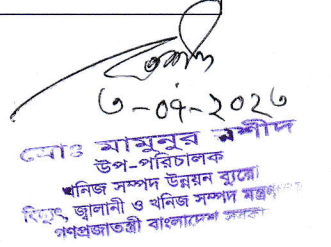 ৩-০৭-২০২৩
মোঃ মামুনুর রশীদ
উপ-পরিচালক
খনিজ সম্পদ উন্নয়ন ব্যুরো
বিদ্যুৎ, জ্বালানী ও খনিজ সম্পদ মন্ত্রণালয়
গণপ্রজাতন্ত্রী বাংলাদেশ সরকার